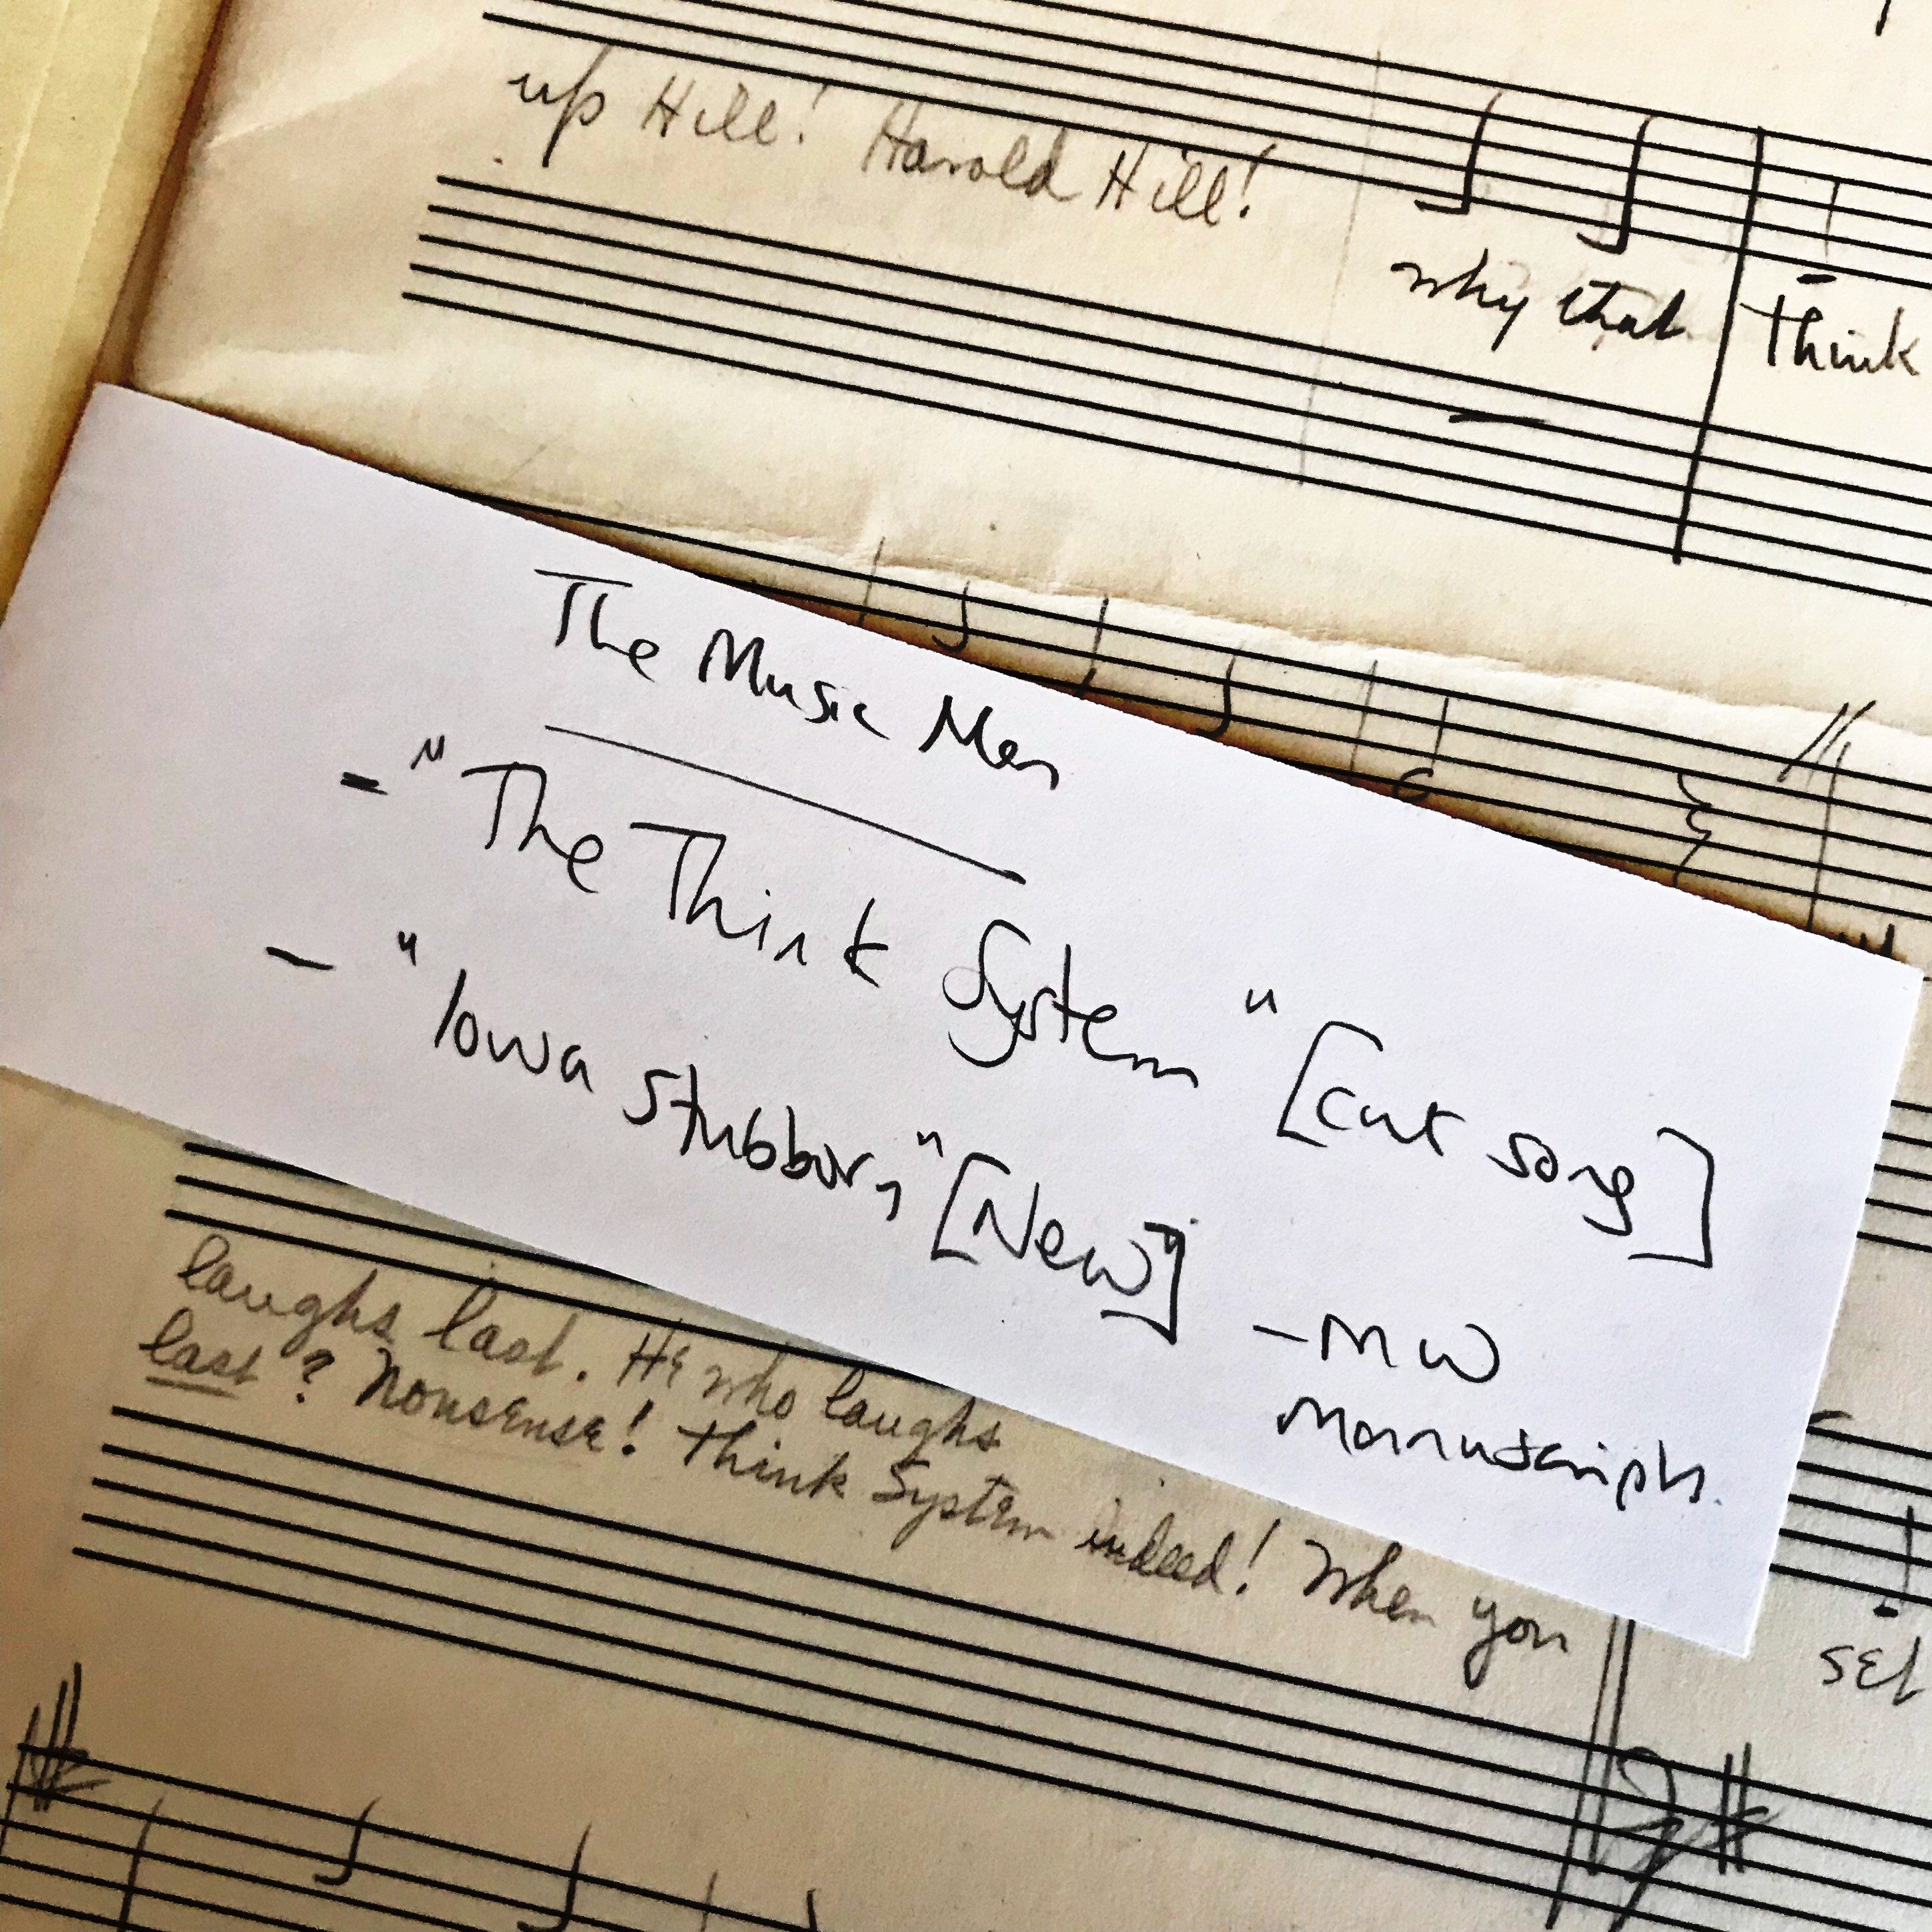 up Hill! Harold Hill!
why that think
The Music Man
- "The Think System" [cut song]
- "Iowa Stubborn" [New]
- MW
Manuscripts.
laughs last. He who laughs
last? Nonsense! Think System indeed! When you
set